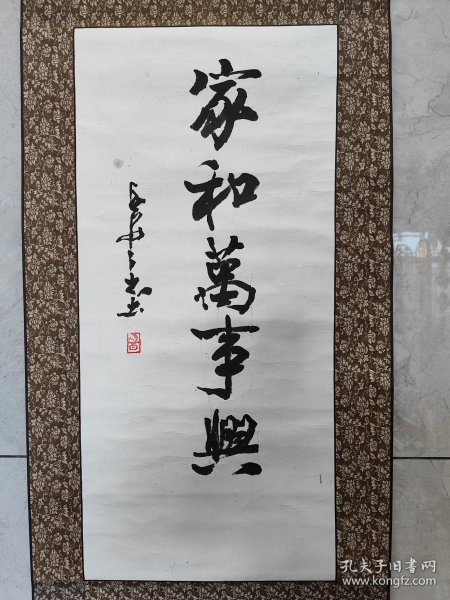 家和萬事興
孔夫子旧书网
www.kongfz.com